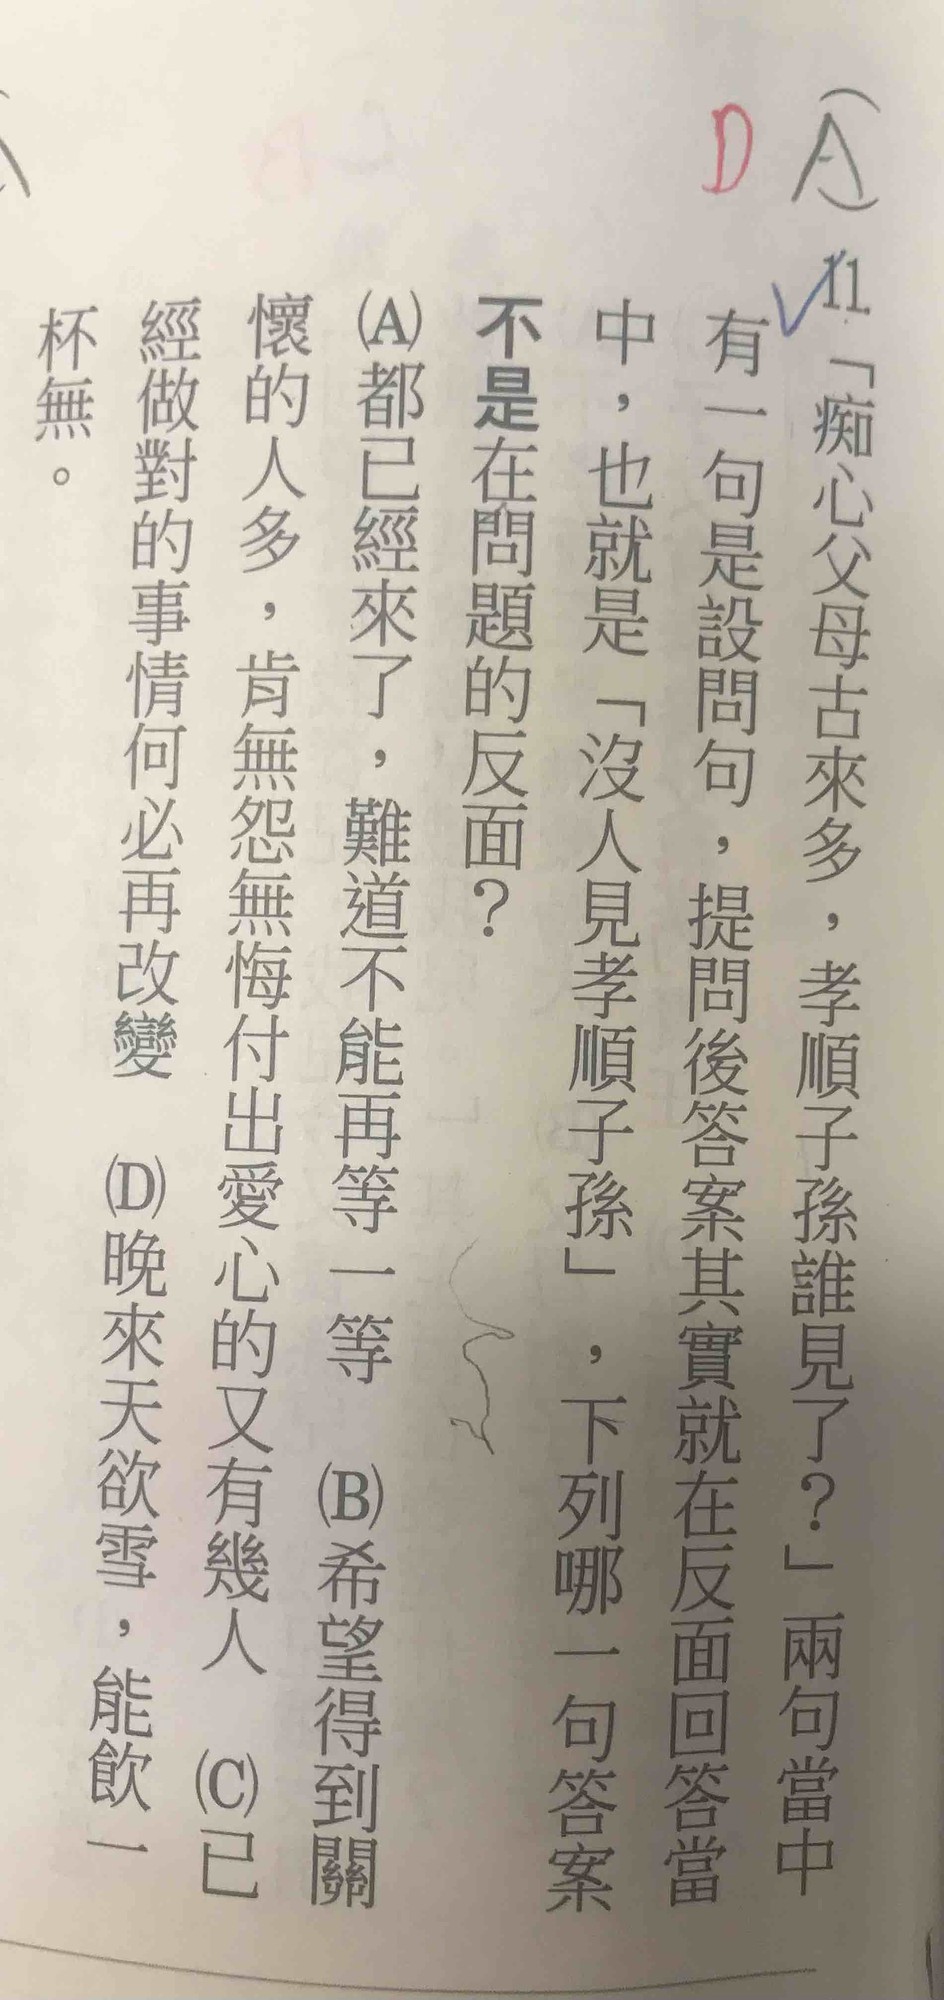 (A)
D
11.「痴心父母古來多，孝順子孫誰見了？」兩句當中
有一句是設問句，提問後答案其實就在反面回答當
中，也就是「沒人見孝順子孫」，下列哪一句答案
不是在問題的反面？
(A)都已經來了，難道不能再等一等　(B)希望得到關
懷的人多，肯無怨無悔付出愛心的又有幾人　(C)已
經做對的事情何必再改變　(D)晚來天欲雪，能飲一
杯無。